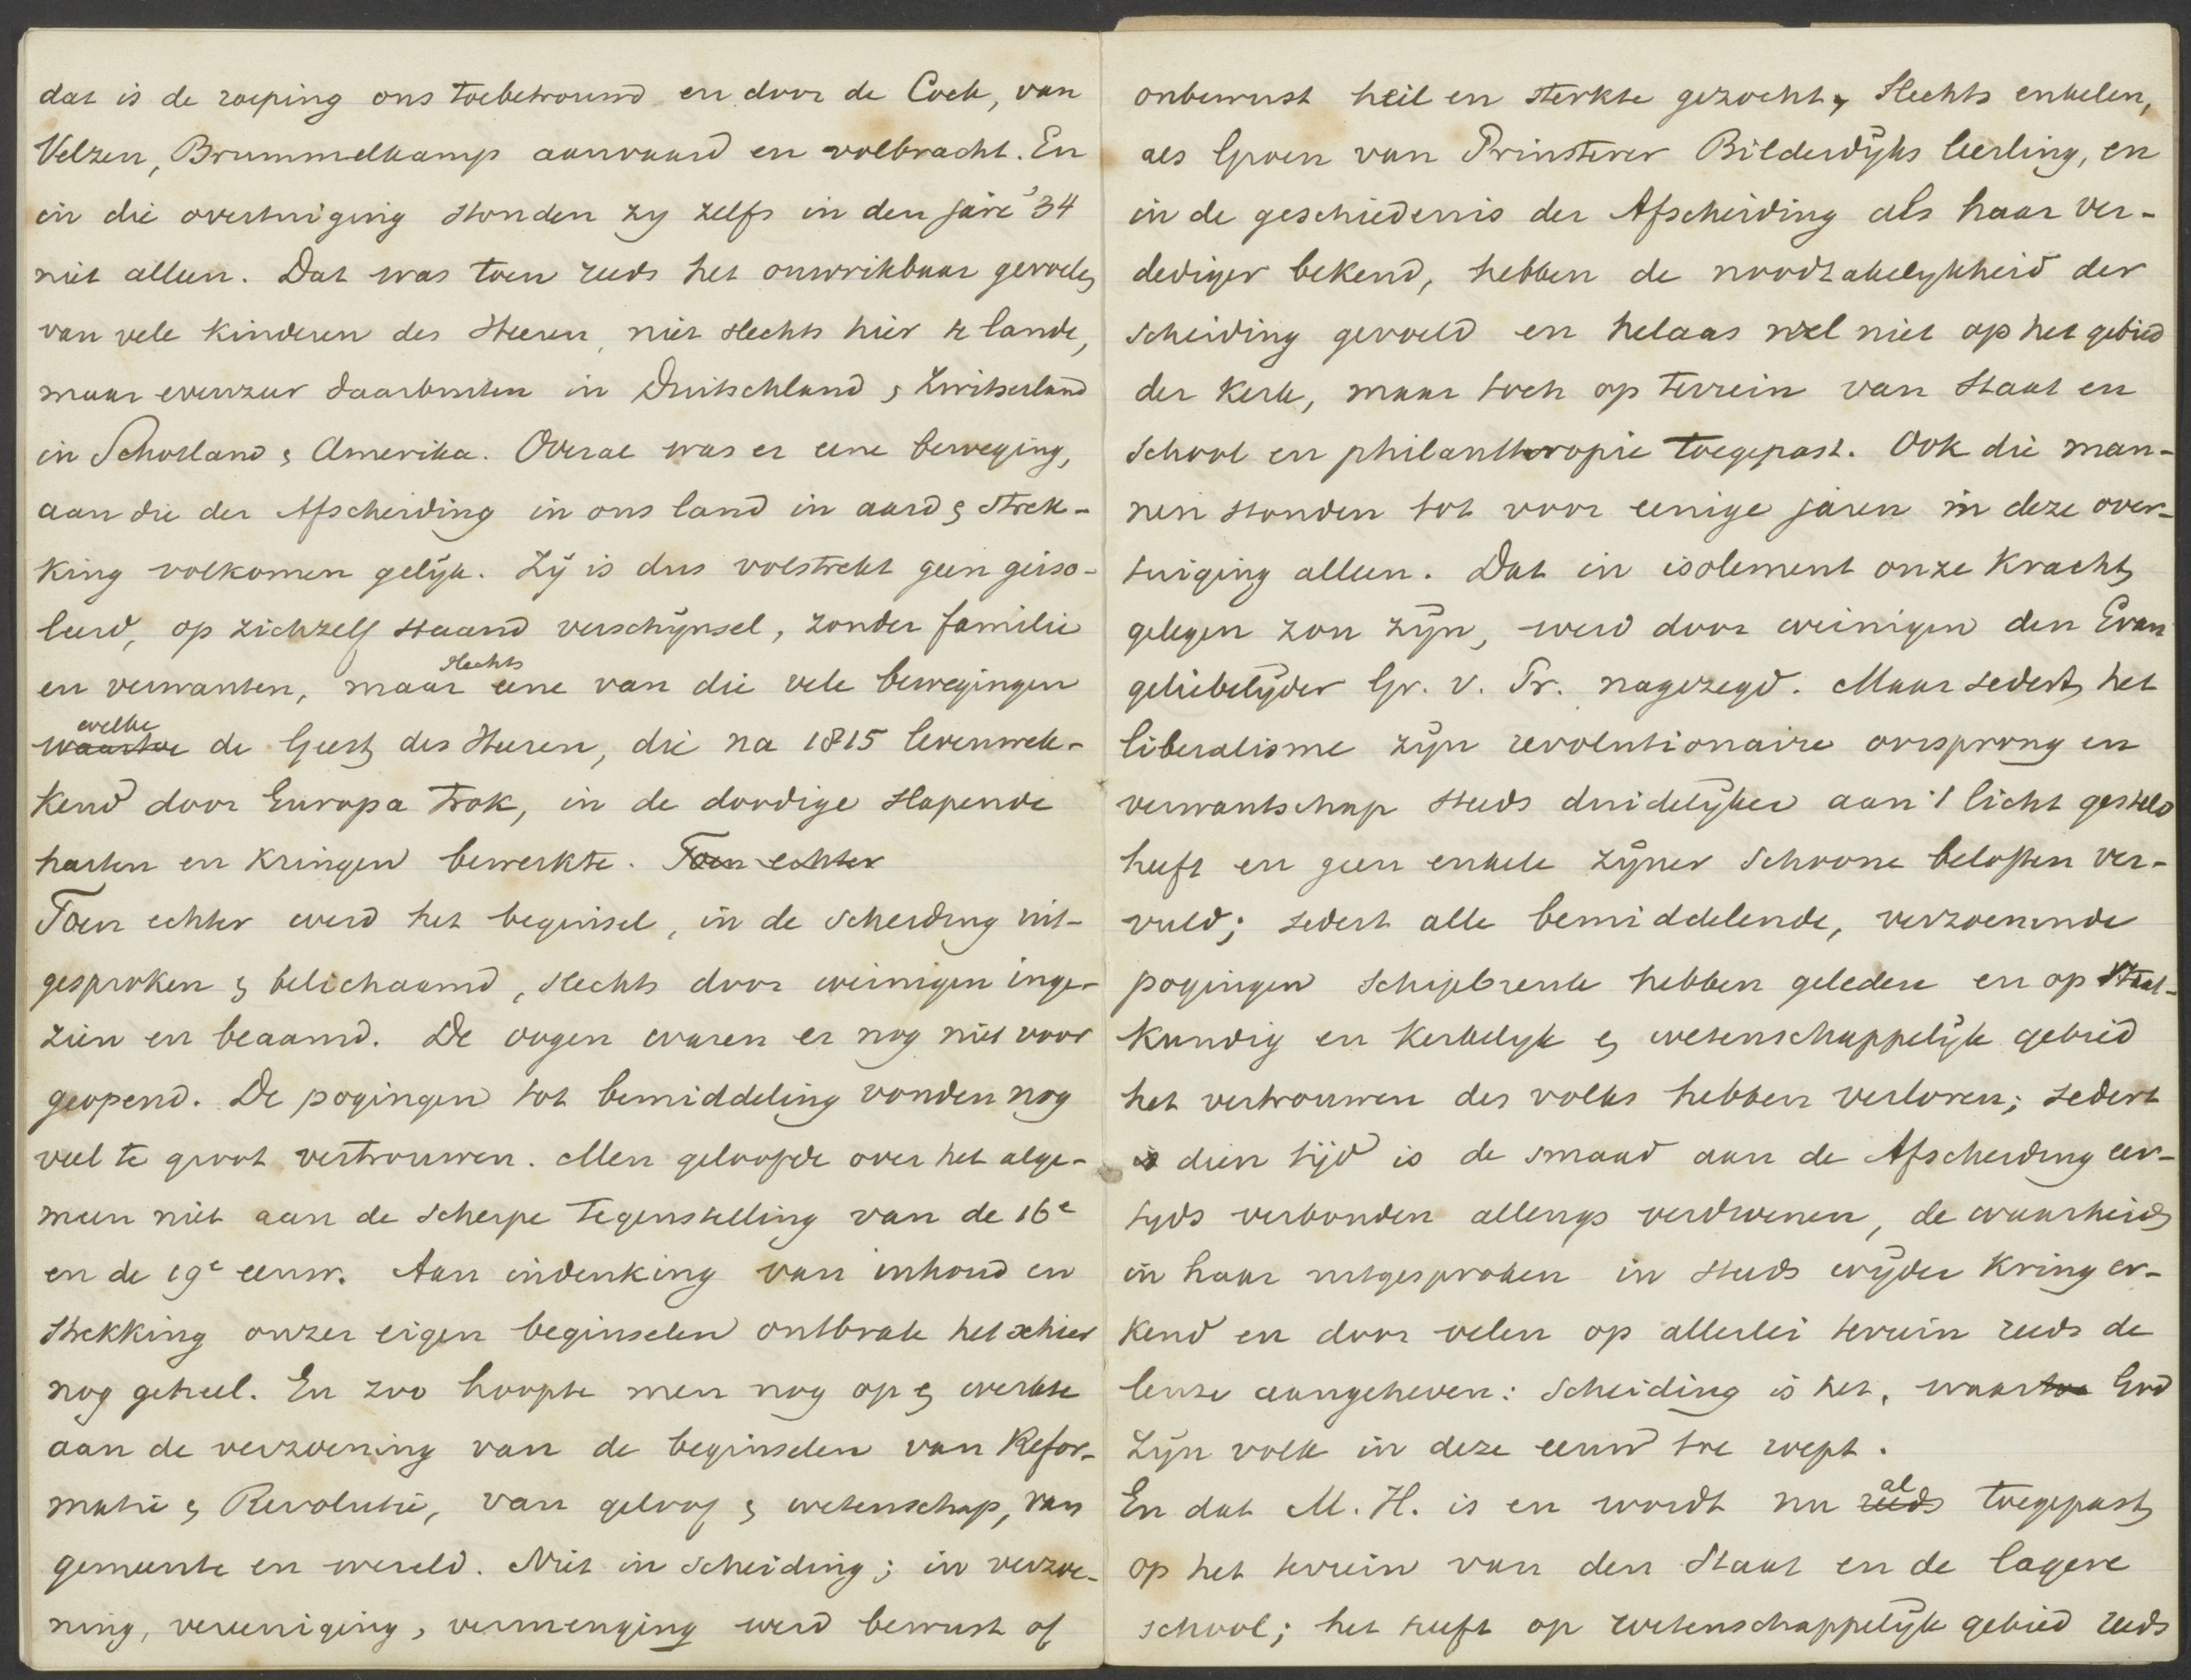 dat is de roeping ons toebetrouwd en door de Cock, van
Velzen, Brummelkamp aanvaard en volbracht. En
in die overtuiging stonden zy zelfs in den jare '34
niet alleen. Dat was toen reeds het onwrikbaar gevoelen
van vele kinderen des Heeren, niet slechts hier te lande,
maar evenzeer daarbuiten in Duitschland & Zwitserland
in Schotland & Amerika. Overal was er eene beweging,
aan die der Afscheiding in ons land in aard & strek-
king volkomen gelijk. Zij is dus volstrekt geen geïso-
leerd, op zichzelf staand verschijnsel, zonder familie
en verwanten, maar slechts eene van die vele bewegingen
waartoe welke de Geest des Heeren, die na 1815 levenwek-
kend door Europa trok, in de doodige slapende
harten en kringen bewerkte. Toen echter
Toen echter werd het beginsel, in de scheiding uit-
gesproken & belichaamd, slechts door weinigen inge-
zien en beaamd. De oogen waren er nog niet voor
geopend. De pogingen tot bemiddeling vonden nog
veel te groot vertrouwen. Men geloofde over het alge-
meen niet aan de scherpe tegenstelling van de 16e
en de 19e eeuw. Aan indenking van inhoud en
strekking onzer eigen beginselen ontbrak het schier
nog geheel. En zoo hoopte men nog op & werkte
aan de verzoening van de beginselen van Refor-
matie & Revolutie, van geloof & wetenschap, van
gemeente en wereld. Niet in scheiding; in verzoe-
ning, vereeniging, vermenging werd bewust of
onbewust heil en sterkte gezocht, Slechts enkelen,
als Groen van Prinsterer Bilderdijks leerling, en
in de geschiedenis der Afscheiding als haar ver-
dediger bekend, hebben de noodzakelykheid der
scheiding gevoeld en helaas wel niet op het gebied
der Kerk, maar toch op terrein van Staat en
School en philanthropie toegepast. Ook die man-
nen stonden tot voor eenige jaren in deze over-
tuiging alleen. Dat in isolement onze kracht
gelegen zou zijn, werd door weinigen den Evan
geliebelijder Gr. v. Pr. nagezegd. Maar sedert het
liberalisme zijn revolutionaire oorsprong en
verwantschap steeds duidelijker aan 't licht gesteld
heeft en geen enkele zijner schoone beloften ver-
vuld; sedert alle bemiddelende, verzoenende
pogingen schipbreuk hebben geleden en op Staat-
kundig en Kerkelyk & wetenschappelijk gebied
het vertrouwen des volks hebben verloren; sedert
is dien tijd is de smaad aan de Afscheiding eer-
tyds verbonden allengs verdwenen, de waarheid
in haar uitgesproken in steeds wijder kring er-
kend en door velen op allerlei terrein reeds de
leuze aangeheven: Scheiding is het, waartoe God
Zijn volk in deze eeuw toe roept.
En dat M. H. is en wordt nu reeds al toegepast
op het terrein van den Staat en de lagere
school; het heeft op wetenschappelijk gebied reeds